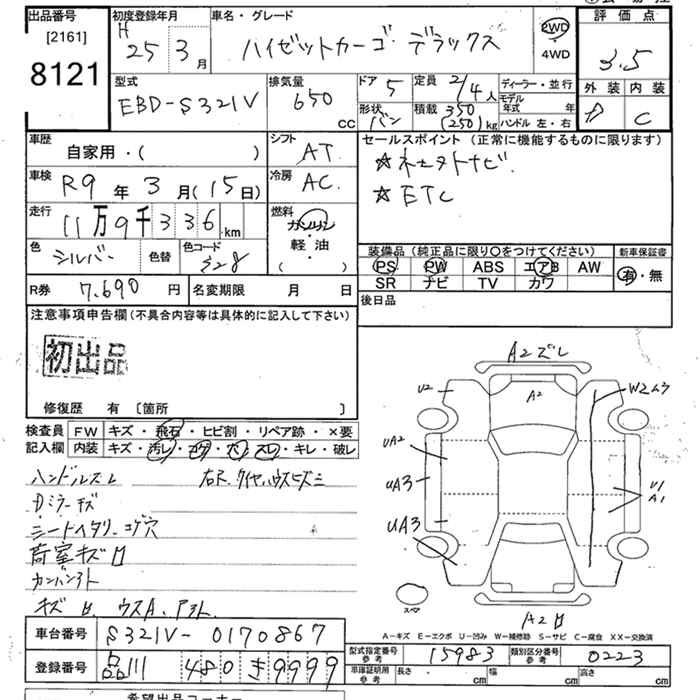 出品番号
[2161]
8121
初度登録年月
H
25 3月
車名・グレード
ハイゼットカーゴ デラックス
2WD
4WD
評価点
3.5
外装 内装
D C
型式
EBD-S321V
排気量
650 cc
ドア
5
形状
バン
定員
2/4人
積載
350
(250)kg
ディーラー・並行
モデル年式 年
ハンドル 左・右
車歴
自家用・( )
シフト
AT
セールスポイント (正常に機能するものに限ります)
☆ ナビ
☆ ETC
車検
R9年3月(15日)
冷房
AC
走行
11万9千336km
燃料
ガソリン
軽・油
( )
色
シルバー
色替
色コード
S28
装備品 (純正品に限り〇をつけてください)
PS PW ABS エアB AW
SR ナビ TV カワ
新車保証書
有・無
R券 7.690円
名変期限 月 日
後日品
注意事項申告欄 (不具合内容等は具体的に記入して下さい)
初出品
修復歴 有 [箇所 ]
検査員
記入欄
FW キズ・飛石・ヒビ割・リペア跡・×要
内装 キズ・汚レ・コゲ・穴・スレ・キレ・破レ
ハンドルスレ
Dミラーキズ
シートヘタリ・コゲ穴
荷室キズ
A2ズレ
U2
A2
W2ムラ
UA2
UA3
UA3
U1
A1
スペア
A2
A-キズ E-エクボ U-凹み W-補修跡 S-サビ C-腐食 XX-交換済
車台番号 S321V-0170867
登録番号 品川 480 き 9999
型式指定番号
参考
15983
類別区分番号
参考
0223
車庫証明用
参考
長さ cm 幅 cm 高さ cm
希望出品コーナー